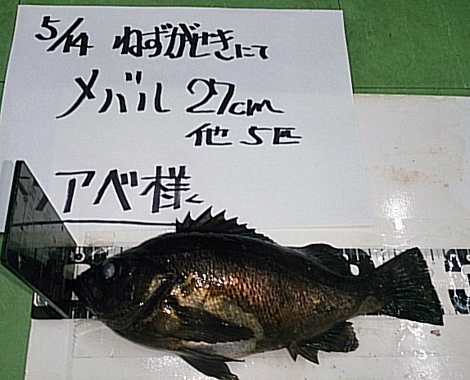 5/14 ねずがせきにて
メバル 27cm
他 5匹
アベ様